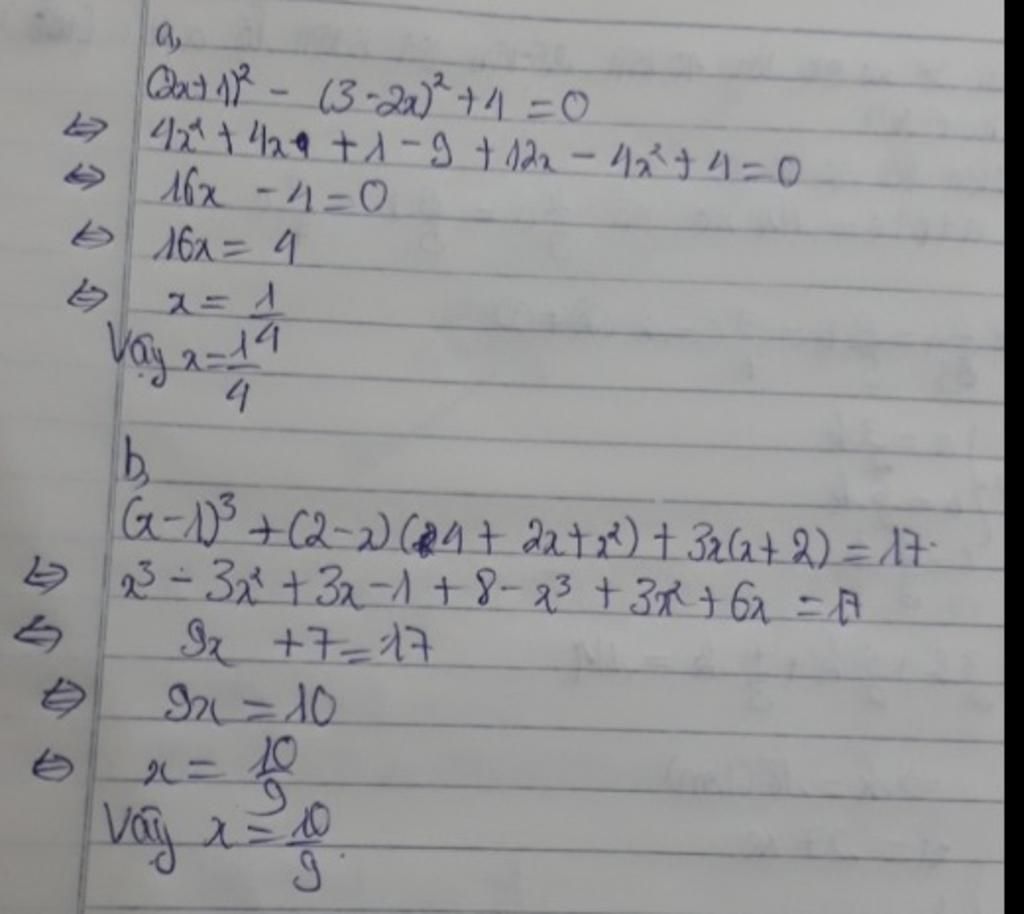 a,
(2x+1)² - (3-2x)² + 4 = 0
⇔ 4x² + 4x + 1 - 9 + 12x - 4x² + 4 = 0
⇔ 16x - 4 = 0
⇔ 16x = 4
⇔ x = 1/4
Vậy x = 1/4
b,
(x-1)³ + (2-x)(4 + 2x + x²) + 3x(x+2) = 17.
⇔ x³ - 3x² + 3x - 1 + 8 - x³ + 3x² + 6x = 17
⇔ 9x + 7 = 17
⇔ 9x = 10
⇔ x = 10/9
Vậy x = 10/9.